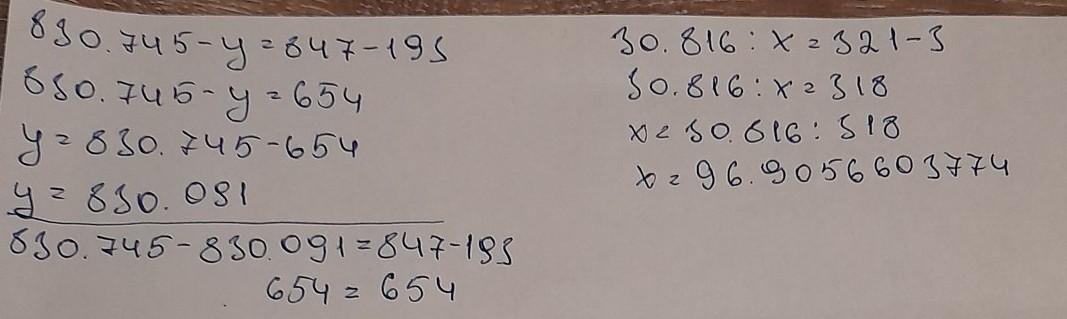 830.745-y=847-193
830.745-y=654
y=830.745-654
y=830.091
830.745-830.091=847-193
654=654
30.816:x=321-3
30.816:x=318
x=30.816:318
x=96.9056603774